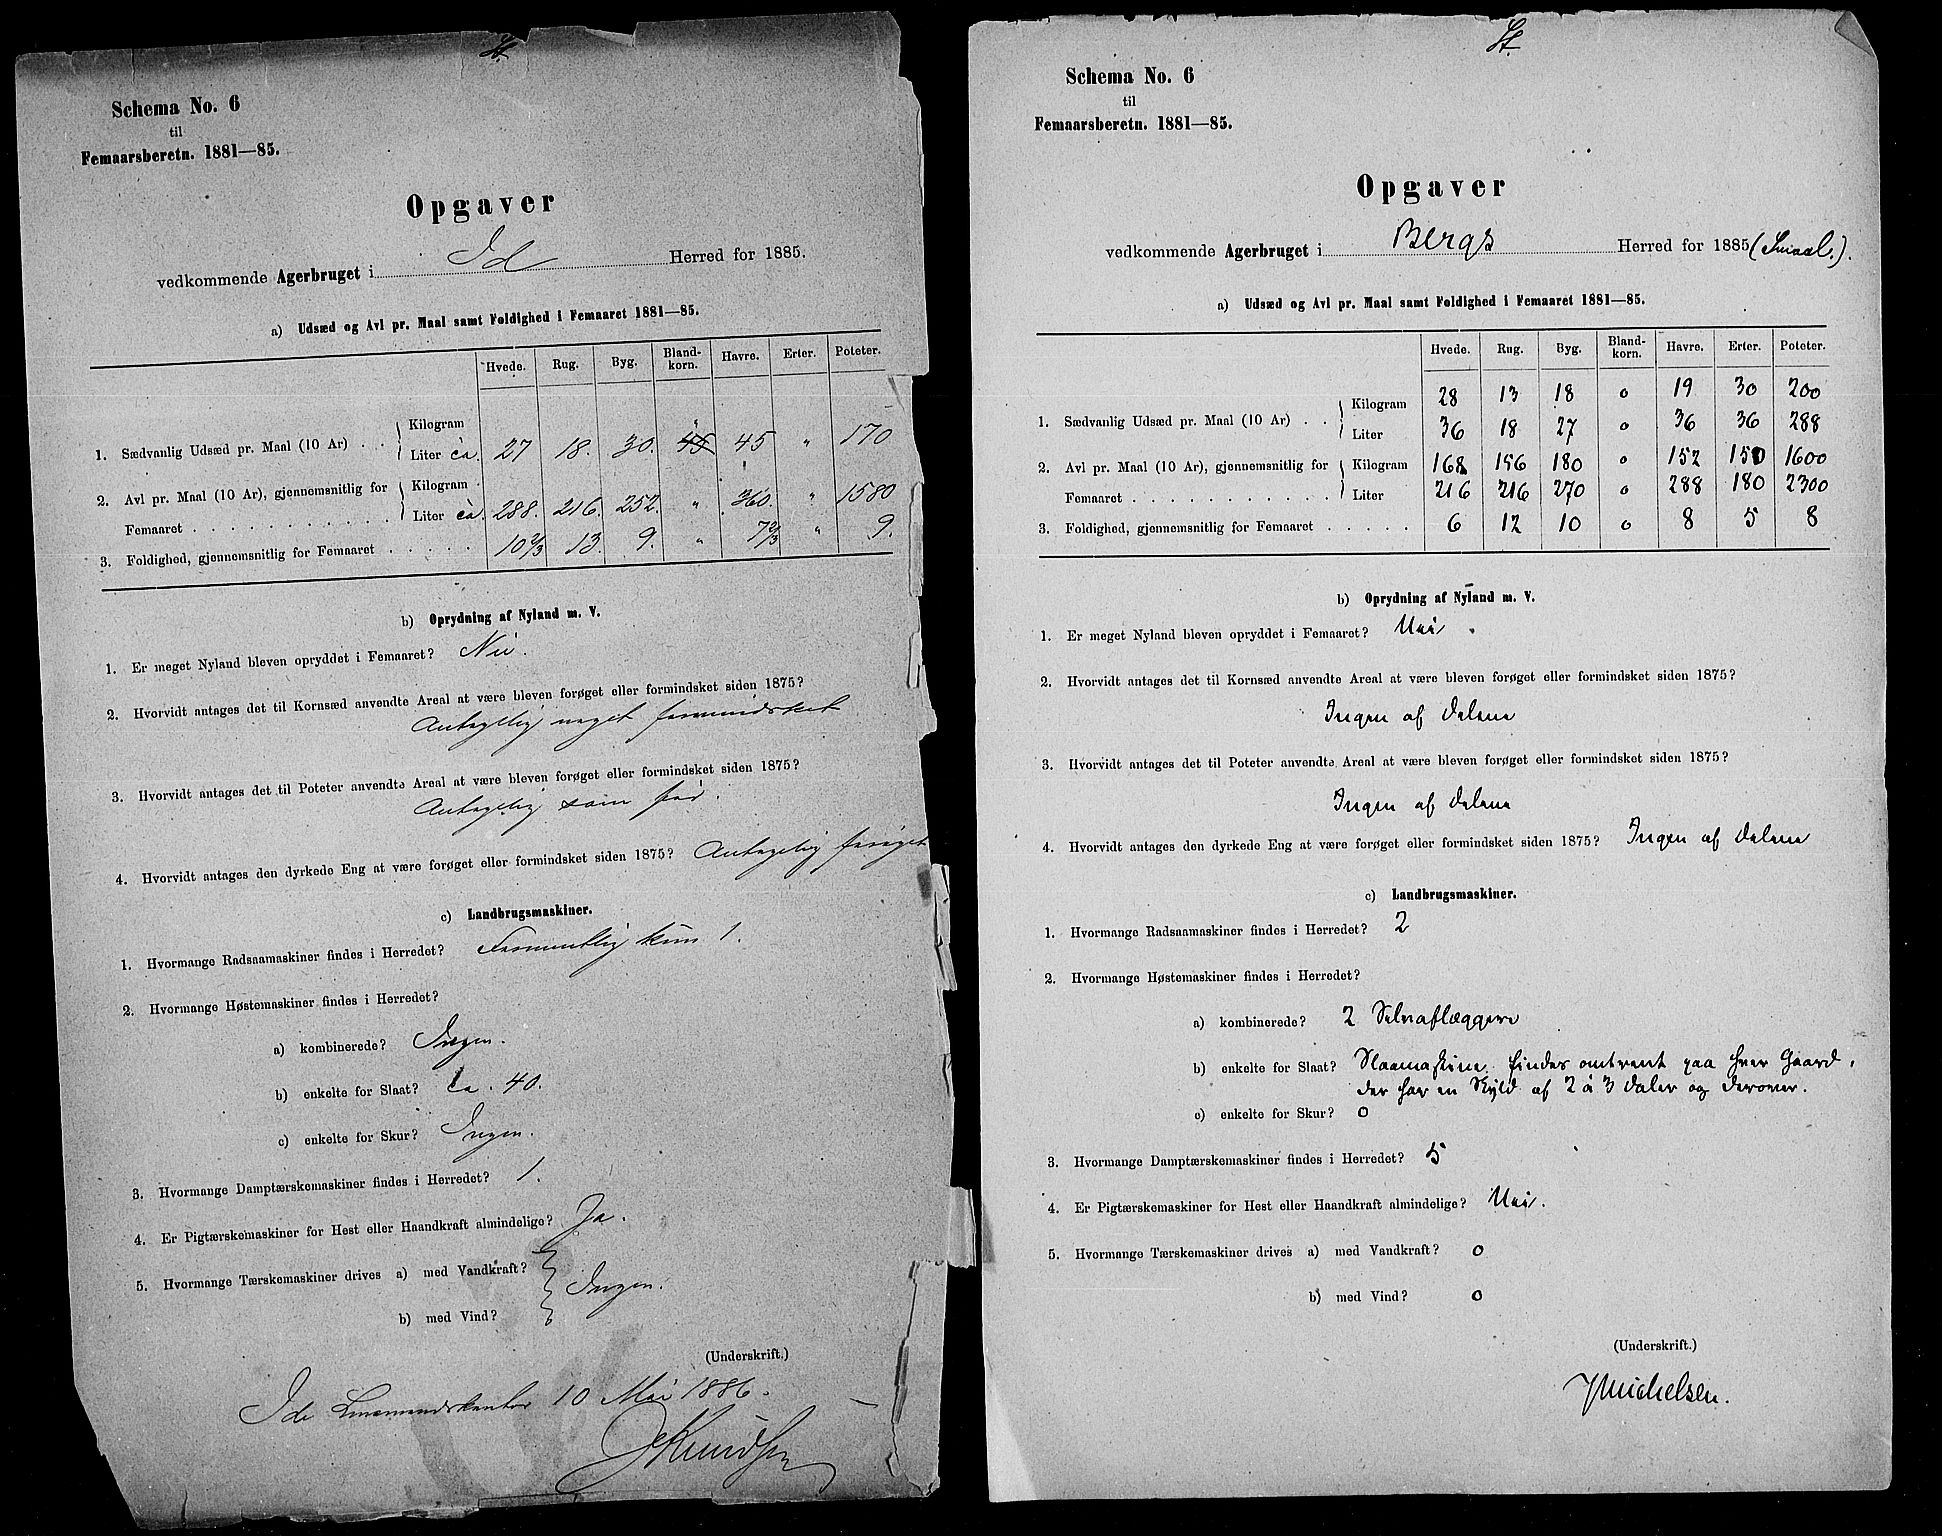 St.
Schema No. 6
til
Femaarsberetn. 1881—85.
Opgaver
vedkommende Agerbruget i Id Herred for 1885.
a) Udsæd og Avl pr. Maal samt Foldighed i Femaaret 1881—85.
Hvede. Rug. Byg. Bland-korn. Havre. Erter. Poteter.
1. Sædvanlig Udsæd pr. Maal (10 Ar) . . Kilogram "
Liter ca. 27 18. 30. 45 45 " 170
2. Avl pr. Maal (10 Ar), gjennemsnitlig for Kilogram
Femaaret . . . . . . . . . . . Liter ca. 288. 216. 252. " 360. " 1580
3. Foldighed, gjennemsnitlig for Femaaret . . . . . 10 2/3 13. 9. " 7 2/3 " 9.
b) Oprydning af Nyland m. V.
1. Er meget Nyland bleven opryddet i Femaaret? Nei.
2. Hvorvidt antages det til Kornsæd anvendte Areal at være bleven forøget eller formindsket siden 1875?
Antagelig noget formindsket
3. Hvorvidt antages det til Poteter anvendte Areal at være bleven forøget eller formindsket siden 1875?
Antagelig som før.
4. Hvorvidt antages den dyrkede Eng at være forøget eller formindsket siden 1875? Antagelig forøget
c) Landbrugsmaskiner.
1. Hvormange Radsaamaskiner findes i Herredet? Formentlig kun 1.
2. Hvormange Høstemaskiner findes i Herredet?
a) kombinerede? Ingen.
b) enkelte for Slaat? ca. 40.
c) enkelte for Skur? Ingen.
3. Hvormange Damptærskemaskiner findes i Herredet? 1.
4. Er Pigtærskemaskiner for Hest eller Haandkraft almindelige? Ja.
5. Hvormange Tærskemaskiner drives a) med Vandkraft?
Ingen.
b) med Vind?
(Underskrift.)
Ide Lensmandskontor 10 Mai 1886.
Knudsen
St.
Schema No. 6
til
Femaarsberetn. 1881—85.
Opgaver
vedkommende Agerbruget i Bergs Herred for 1885 (Smaal.).
a) Udsæd og Avl pr. Maal samt Foldighed i Femaaret 1881—85.
Hvede. Rug. Byg. Bland-korn. Havre. Erter. Poteter.
1. Sædvanlig Udsæd pr. Maal (10 Ar) . . Kilogram 28 13 18 0 19 30 200
Liter 36 18 27 0 36 36 288
2. Avl pr. Maal (10 Ar), gjennemsnitlig for Kilogram 168 156 180 0 152 150 1600
Femaaret . . . . . . . . . . . Liter 216 216 270 0 288 180 2300
3. Foldighed, gjennemsnitlig for Femaaret . . . . . 6 12 10 0 8 5 8
b) Oprydning af Nyland m. V.
1. Er meget Nyland bleven opryddet i Femaaret? Nei.
2. Hvorvidt antages det til Kornsæd anvendte Areal at være bleven forøget eller formindsket siden 1875?
Ingen af delene
3. Hvorvidt antages det til Poteter anvendte Areal at være bleven forøget eller formindsket siden 1875?
Ingen af delene
4. Hvorvidt antages den dyrkede Eng at være forøget eller formindsket siden 1875? Ingen af delene
c) Landbrugsmaskiner.
1. Hvormange Radsaamaskiner findes i Herredet? 2
2. Hvormange Høstemaskiner findes i Herredet?
a) kombinerede? 2 Selvaflæggere
b) enkelte for Slaat? Slaamaskine findes omtrent paa hver Gaard,
der har en Skyld af 2 à 3 daler og derover.
c) enkelte for Skur? 0
3. Hvormange Damptærskemaskiner findes i Herredet? 5
4. Er Pigtærskemaskiner for Hest eller Haandkraft almindelige? Nei.
5. Hvormange Tærskemaskiner drives a) med Vandkraft? 0
b) med Vind? 0
(Underskrift.)
JMichelsen.